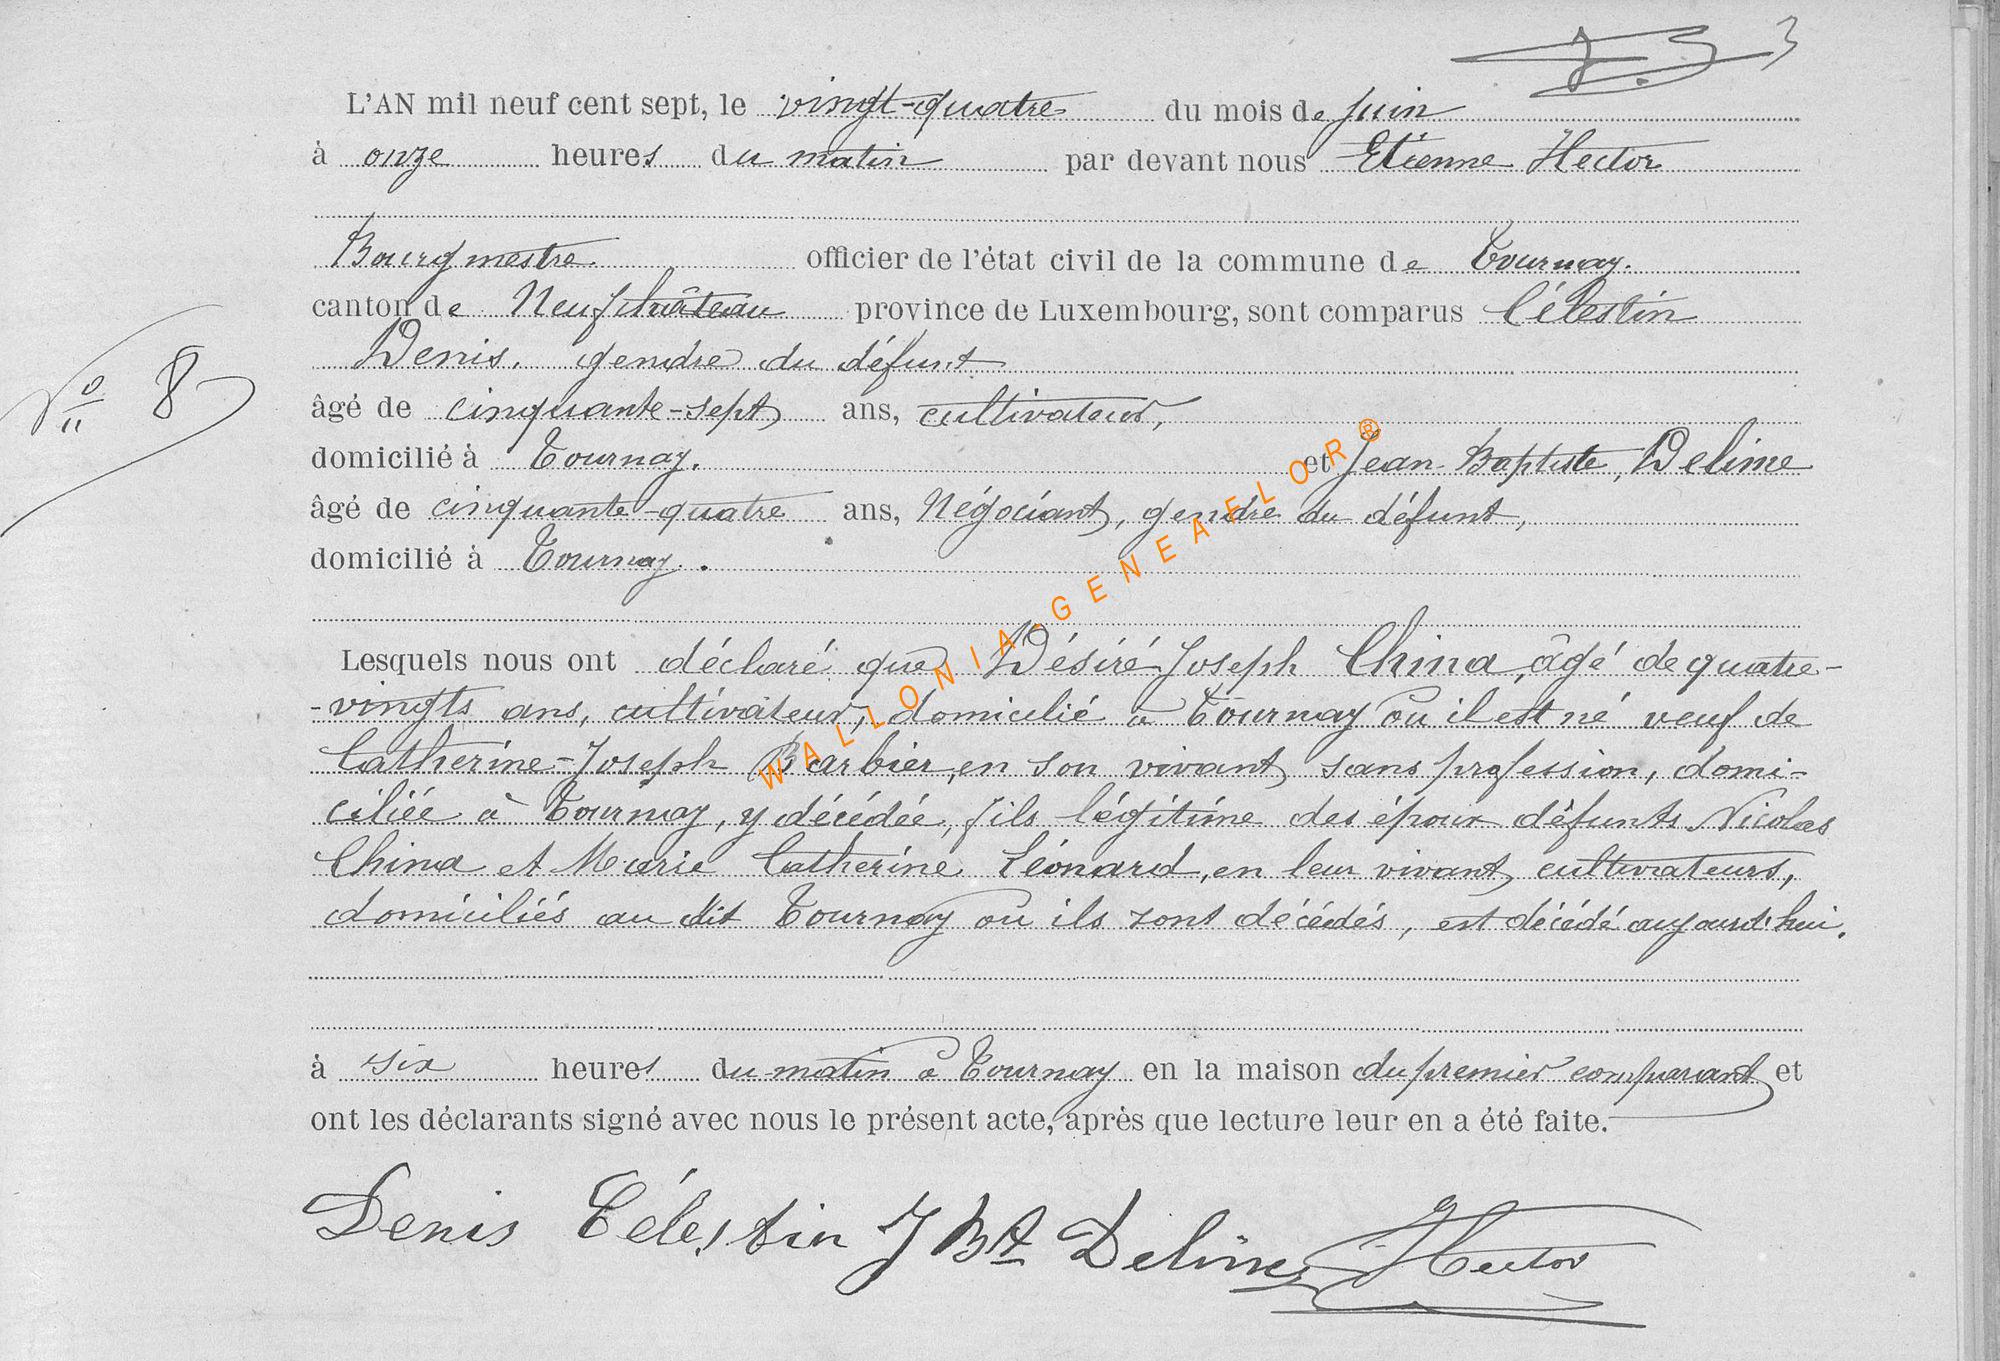 3
L'AN mil neuf cent sept, le vingt-quatre du mois de juin
à onze heures du matin par devant nous Etienne Hector
Bourgmestre officier de l'état civil de la commune de Tournay.
canton de Neufchâteau province de Luxembourg, sont comparus Célestin
Denis, gendre du défunt
No 8
âgé de cinquante-sept ans, cultivateur,
domicilié à Tournay. et Jean-Baptiste, Delime
âgé de cinquante-quatre ans, Négociant, gendre du défunt,
domicilié à Tournay.
WALLONIA-GENEAFLOR®
Lesquels nous ont déclaré que Désiré-Joseph China, âgé de quatre-
-vingts ans, cultivateur, domicilié à Tournay où il est né veuf de
Catherine-Joseph Barbier, en son vivant sans profession, domi-
ciliée à Tournay, y décédée, fils légitime des époux défunts Nicolas
China et Marie Catherine Léonard, en leur vivant cultivateurs,
domiciliés au dit Tournay où ils sont décédés, est décédé aujourd'hui.
à six heures du matin à Tournay en la maison du premier comparant et
ont les déclarants signé avec nous le présent acte, après que lecture leur en a été faite.
Denis Célestin J Bt Delime Hector